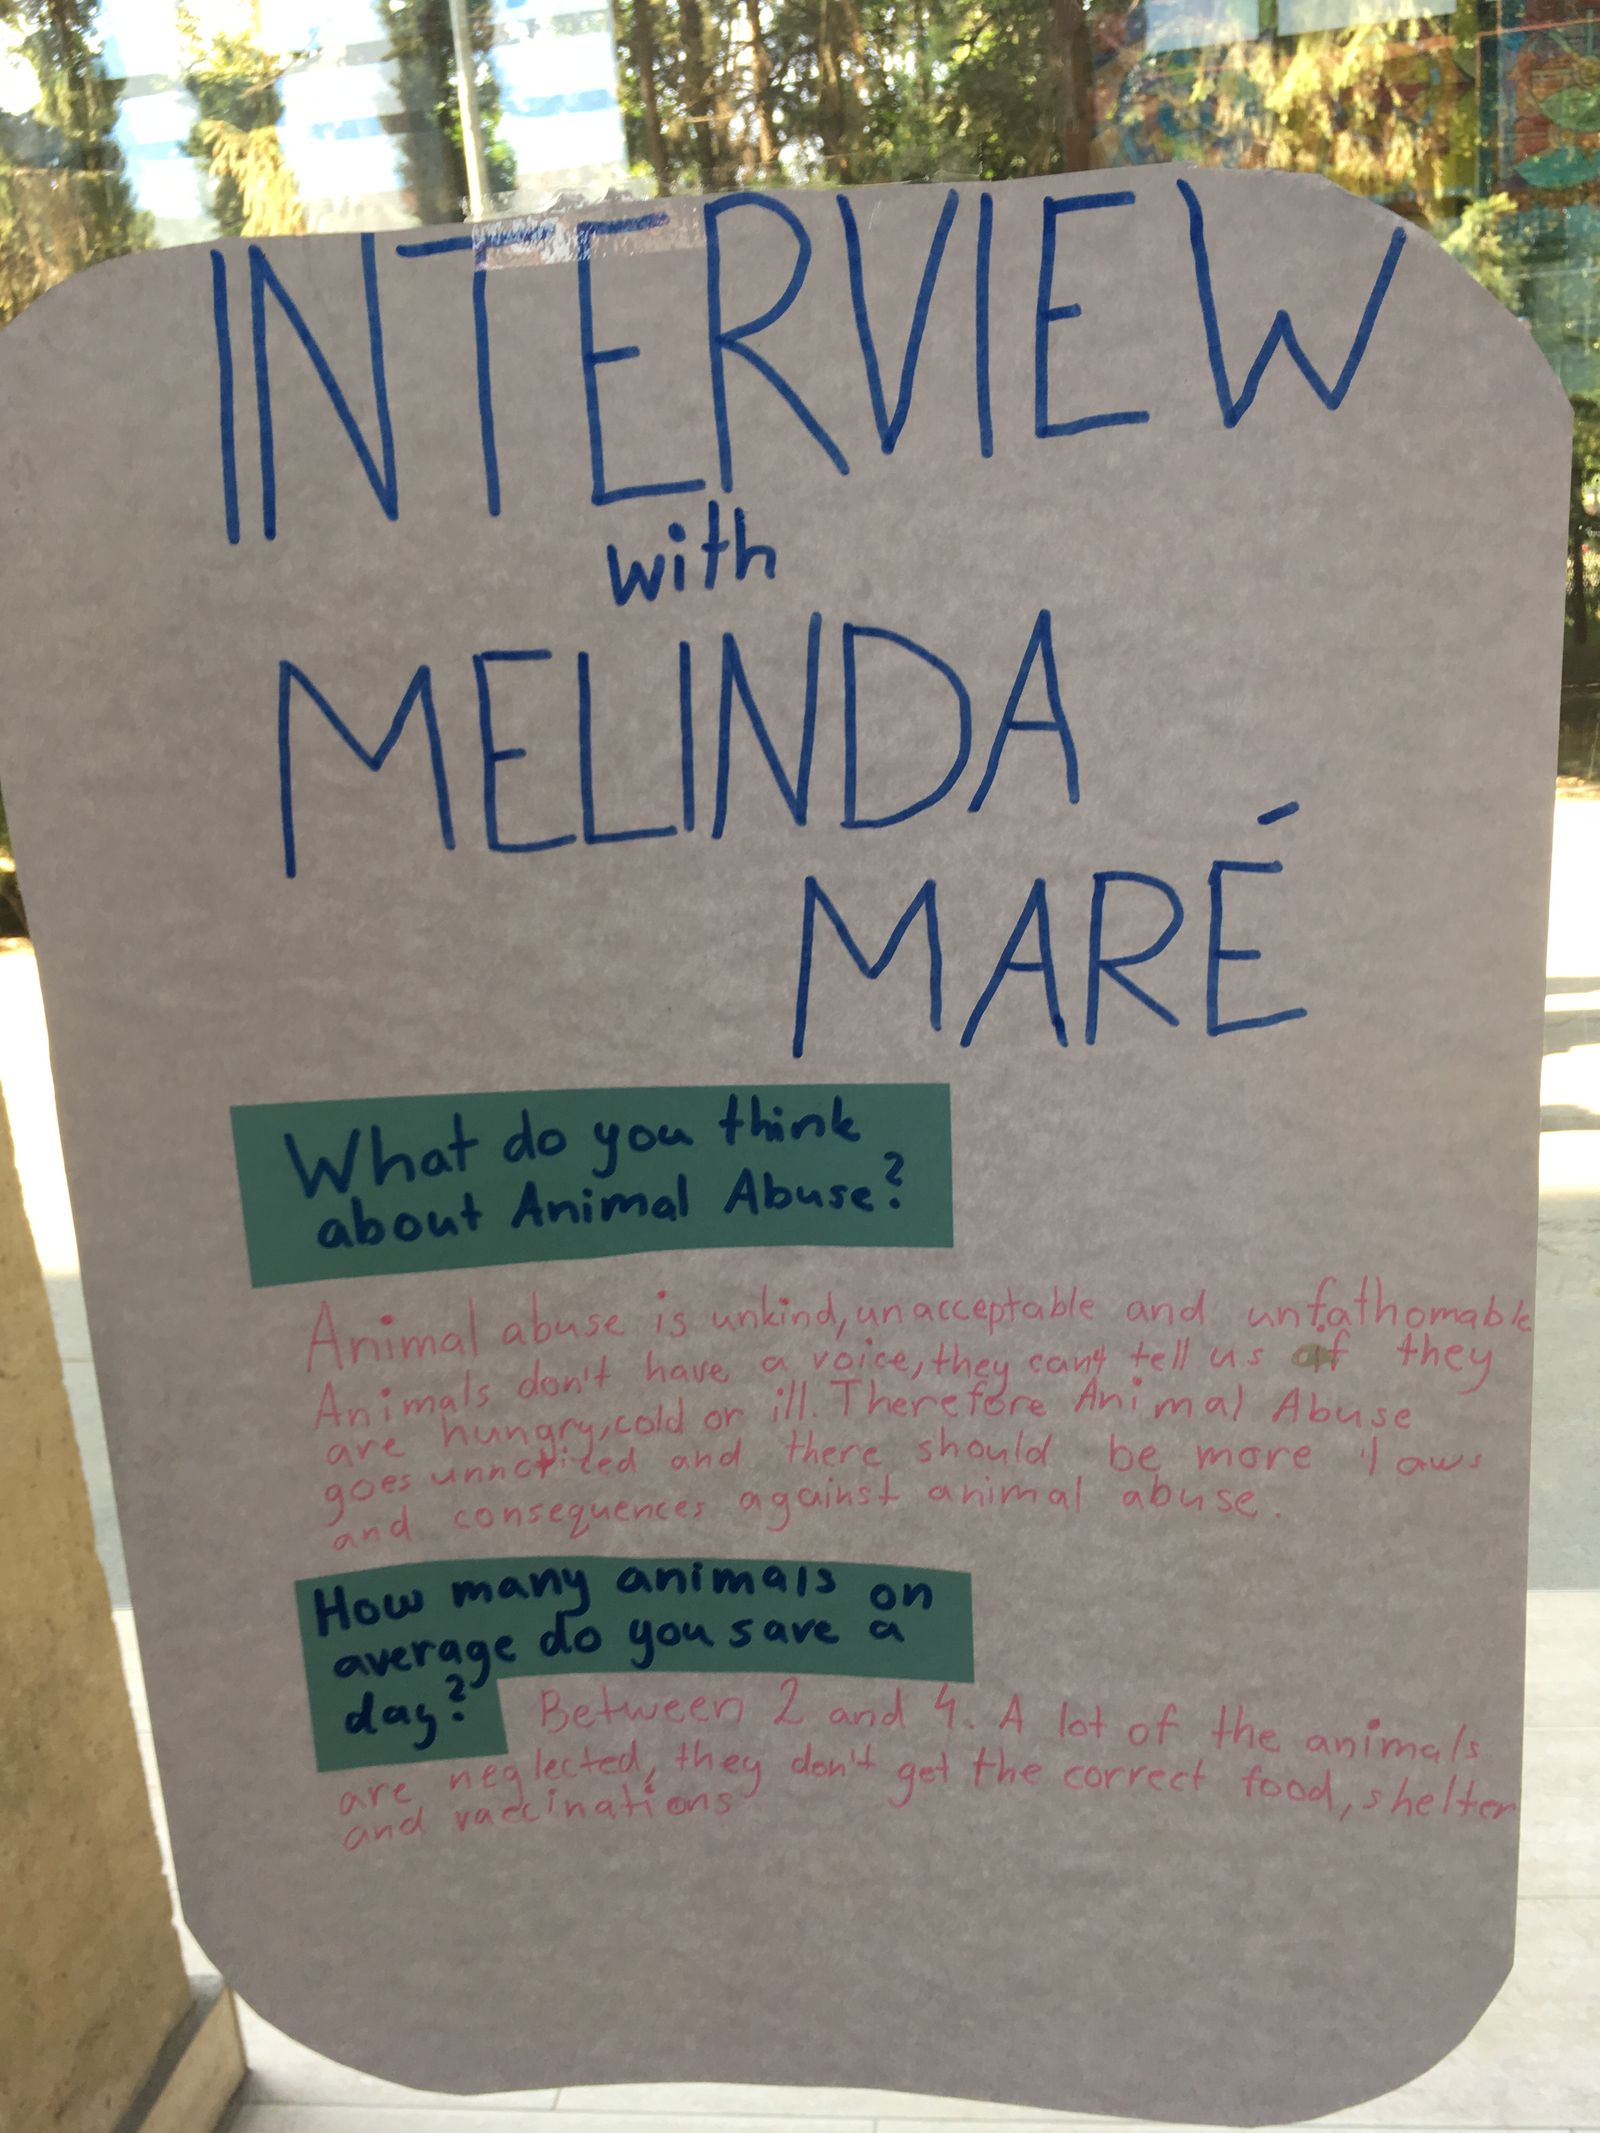 INTERVIEW
with
MELINDA
MARÉ
What do you think
about Animal Abuse?
Animal abuse is unkind, unacceptable and unfathomable
Animals don't have a voice, they can't tell us if they
are hungry, cold or ill. Therefore Animal Abuse
goes unnoticed and there should be more laws
and consequences against animal abuse.
How many animals on
average do you save a
day?
Between 2 and 4. A lot of the animals
are neglected, they don't get the correct food, shelter
and vaccinations